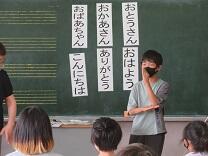 おとうさん
おかあさん
おばあちゃん
おはよう
ありがとう
こんにちは